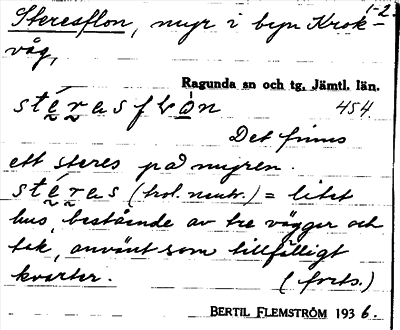 Steresflon, myr i byn Krok- 1-2.
våg,
Ragunda sn och tg, Jämtl. län.
stérasflòn 454.
Det finns
ett steres på myren.
stéras (kol. neutr.) = litet
hus, bestående av tre väggar och
tak, använt som tillfälligt
kvarter. (forts.)
BERTIL FLEMSTRÖM 1936.